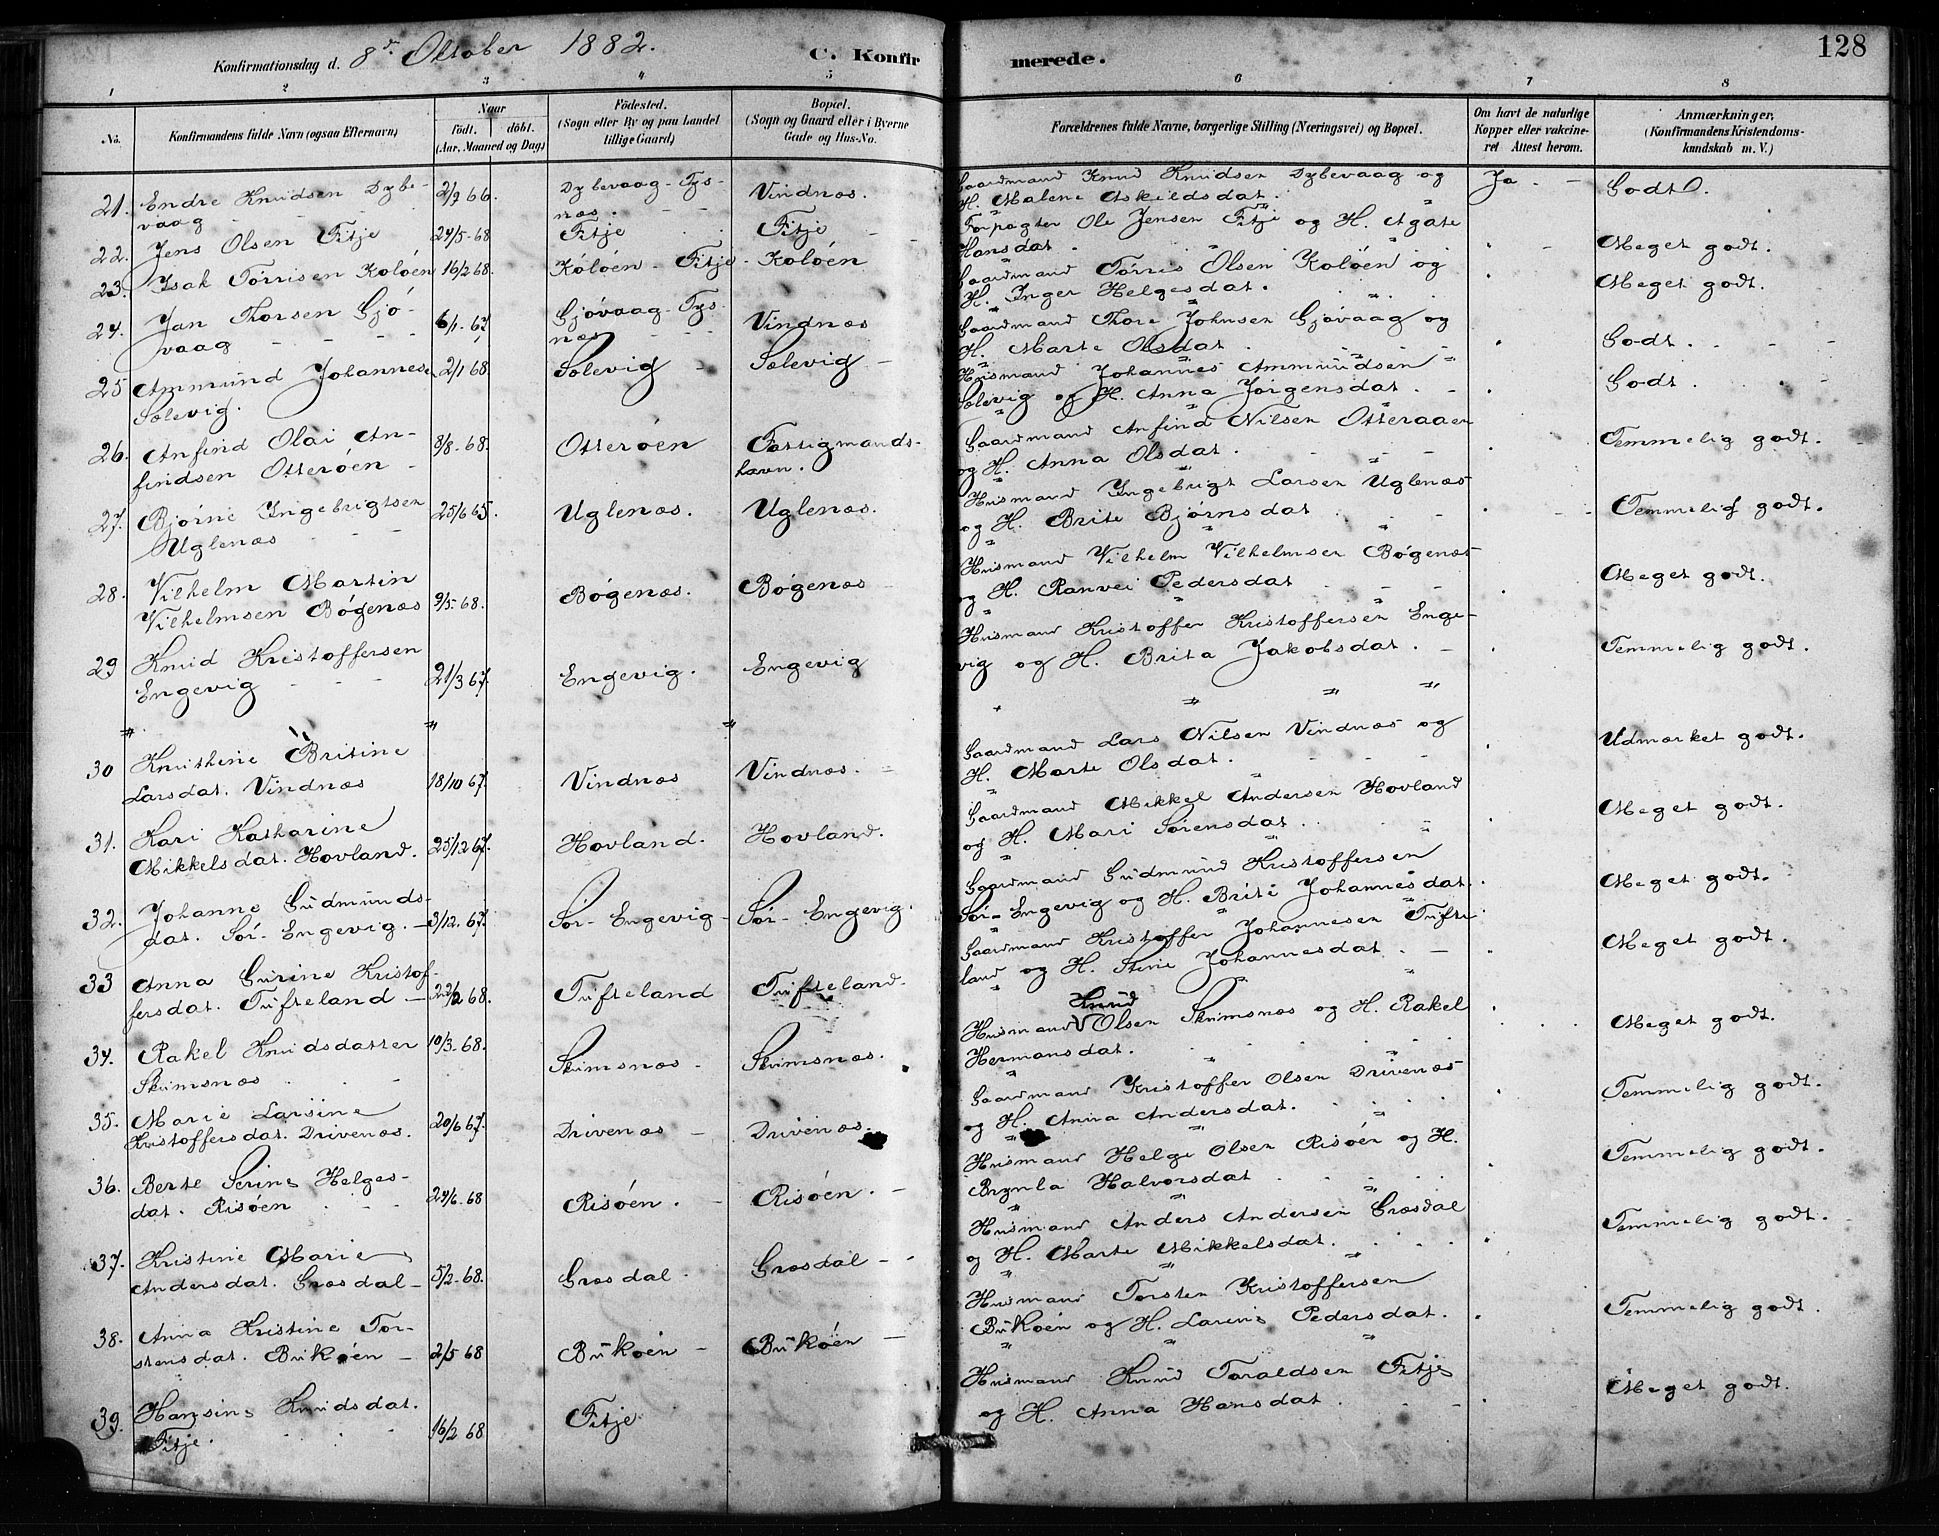 128
Konfirmationsdag d. 8de Oktober 1882. C. Konfirmerede.
1 2 3 4 5 6 7 8
No. Konfirmandens fulde Navn (ogsaa Efternavn) Naar født. døbt. (Aar, Maaned og Dag) Födested. (Sogn eller By og paa Landet tillige Gaard) Bopæl. (Sogn og Gaard eller i Byerne Gade og Hus-No. Forældrenes fulde Navne, borgerlige Stilling (Næringsvei) og Bopæl. Om havt de naturlige Kopper eller vakcineret Attest herom. Anmærkninger, (Konfirmandens Kristendomskundskab m. V.)
21. Endre Knudsen Dybe- 2/9 66. Dybevaag - Tys- Vindnæs. Gaardmand Knud Knudsen Dybevaag og Ja. Godt.
vaag næs. H. Malene Askildsdat.
22. Jens Olsen Fitje 24/5-68 Fitje Fitje Forpagter Ole Jensen Fitje og H. Agate
Hansdat. Meget godt.
23. Isak Tørrisen Koløen 16/2 68. Køløen - Fitje - Koløen Gaardmand Tørris Olsen Koløen og
H. Inger Helgesdat. Meget godt.
24. Jan Thorsen Gjø- 6/1-67 Gjøvaag - Tys- Vindnæs Gaardmand Thore Johnsen Gjøvaag og
vaag næs H. Marte Olsdat. Godt.
25 Ammund Johannesen 2/1 68. Solevig Solevig Husmand Johannes Ammundsen
Solevig. Solevig og H. Anna Jørgensdat. Godt.
26. Anfind Olai An- 8/8-68. Otterøen Fattigmands- Gaardmand Anfind Nilsen Otteraaen
findsen Otterøen havn. og H. Anna Olsdat. Temmelig godt.
27. Bjørne Ingebrigtsen 25/6 65. Uglenæs. Uglenæs. Husmand Ingebrigt Larsen Uglenæs
Uglenæs og H. Brite Bjørnsdat Temmelig godt.
28. Vilhelm Martin Bøgenæs. Bøgenæs Husmand Vilhelm Vilhelmsen Bøgenæs
Vilhelmsen Bøgenæs 9/5-68. og H. Ranvei Pedersdat Meget godt.
29 Knud Kristoffersen 21/3 67. Engevig. Engevig Husmand Kristoffer Kristoffersen Enge-
Engevig vig og H. Brita Jakobsdat. Temmelig godt.
30 Knuthine Britine Gaardmand Lars Nilsen Vindnæs og
Larsdat. Vindnæs 18/10 67. Vindnæs Vindnæs. H. Marte Olsdat. Udmærket godt.
31. Kari Katharine Gaardmand Mikkel Andersen Hovland
Mikkelsdat. Hovland. 25/12 67. Hovland. Hovland. og H. Mari Sørensdat. Meget godt.
32. Johanne Gudmunds- Gaardmand Gudmund Kristoffersen
dat. Sør-Engevig. 3/12. 67. Sør-Engevig Sør-Engevig. Sør-Engevig og H. Brite Johannesdat. Meget godt.
33 Anna Gurine Kristof- Gaardmand Kristoffer Johannesen Tufte
fersdat. Tufteland 22/2 68. Tufteland Tufteland. land og H. Stine Johannesdat. Meget godt.
34. Rakel Knudsdatter 10/3-68. Skumsnæs Skumsnæs. Husmand Knud Olsen Skumsnæs og H. Rakel
Skumsnæs Hermansdat. Meget godt.
35. Marie Larsine 20/6 67. Drivenæs Drivenæs. Gaardmand Kristoffer Olsen Drivenæs
Kristoffersdat. Drivenæs. og H. Anna Andersdat. Temmelig godt.
36. Berte Serine Helges- 24/6-68 Risøen. Risøen. Husmand Helge Olsen Risøen og H.
dat. Risøen Brynla Halvorsdat Temmelig godt.
37. Kristine Marie Husmand Anders Andersen Græsdal
Andersdat. Græsdal 5/2-68. Græsdal. Græsdal og H. Marte Mikkelsdat. Temmelig godt.
38. Anna Kristine Tor- Husmand Torsten Kristoffersen
stensdat. Bukøen 2/5 68 Bukøen Bukøen Bukøen og H. Larine Pedersdat. Temmelig godt.
39. Hansine Knudsdat. Fitje Husmand Knud Toraldsen Fitje
Fitje. 16/2 68 og H. Anna Hansdat. Meget godt.